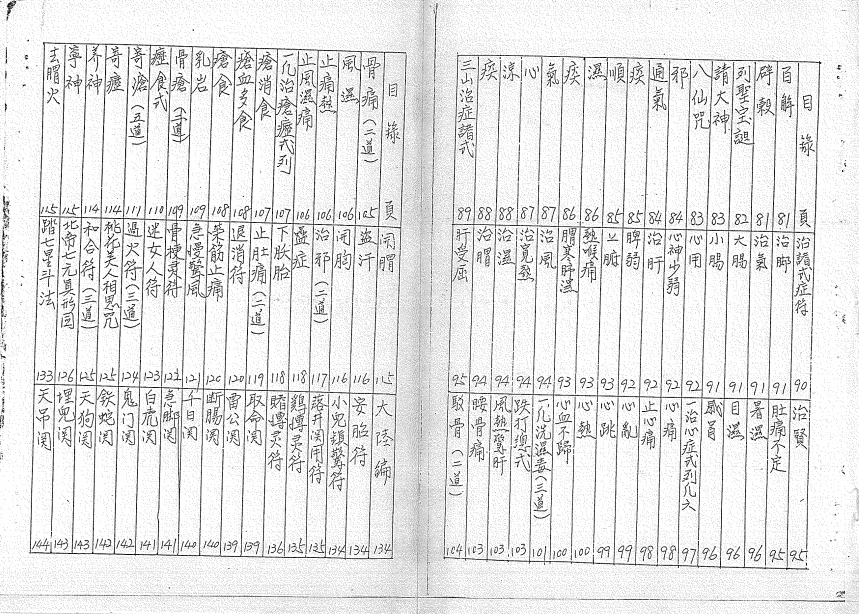 目錄 頁
百解 81
辟穀 81
列聖宝誔 82
請大神 83
八仙咒 83
邪 84
通氣 84
痰 85
順 85
濕 86
痰 86
氣 87
心 87
涼 88
疾 88
三山治症諸式 89
治諸式症符 90
治脚 91
治氣 91
大腸 91
小腸 91
心用 92
心神少弱 92
治肝 92
脾弱 92
上腑 93
熱喉痛 93
胃寒肺濕 93
治風 94
治寬熱 94
治溫 94
治胃 94
肝受屈 95
治賢 95
肚痛不定 95
暑濕 96
目濕 96
感冒 96
一治心症式列几大 97
心痛 98
止心痛 98
心亂 99
心跳 99
心熱 100
心血不歸 100
一凢洗濕毒(三道) 101
跌打總式 103
風熱驚肝 103
腰骨痛 103
駁骨(二道) 104
目錄 頁
骨痛(二道) 105
風濕 106
止痛熱 106
止風濕痛 106
一凢治瘡癦式列 107
瘡消食 107
瘡血多食 108
瘡食 108
乳岩 109
骨瘡(二道) 109
癦食式 110
奇瘡(五道) 111
奇癦 114
养神 114
寧神 115
去胃火 115
開胃 115
盗汗 116
開胸 116
治邪(二道) 117
癋症 118
下肽胎 118
止肚痛(二道) 119
退消符 120
柴筋止痛 120
急慢驚風 121
骨梗灵符 122
迷女人符 123
過火符(三道) 124
桃花美人相思咒 125
和合符(三道) 125
北帝七元真形図 126
踏七星斗法 133
大陸編 134
安胎符 134
小兒頭驚符 134
落井関用符 135
鷄摶灵符 135
賭摶灵符 136
取命関 139
雷公関 139
断腸関 140
千日関 140
急脚関 141
白虎関 141
鬼门関 142
铁蛇関 142
天狗関 143
埋児関 143
天吊関 144